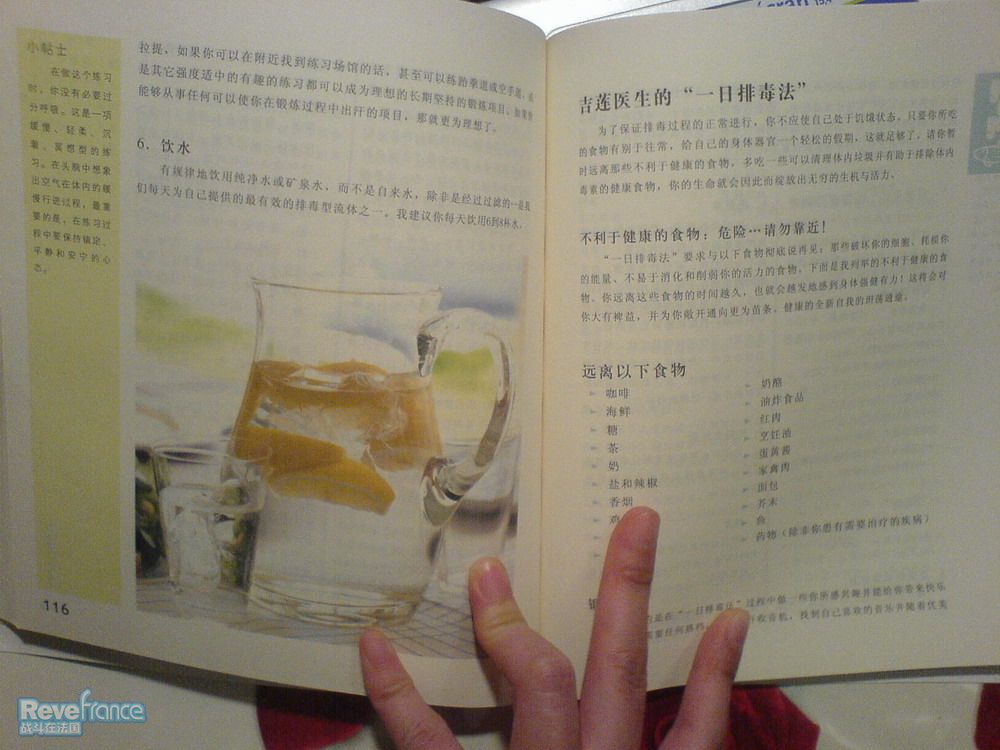 小帖士
在做这个练习
时，你没有必要过
分呼吸。这是一项
缓慢、轻柔、沉
着、冥想型的练
习。在头脑中想象
出空气在体内的缓
慢行进过程，最重
要的是，在练习过
程中要保持镇定、
平静和安宁的心
态。
116
拉提、如果你可以在附近找到练习场馆的话，甚至可以练跆拳道或空手道，或
是其它强度适中的有趣的练习都可以成为理想的长期坚持的锻炼项目。如果你
能够从事任何可以使你在锻炼过程中出汗的项目，那就更为理想了。
6. 饮水
有规律地饮用纯净水或矿泉水，而不是自来水，除非是经过过滤的——是我
们每天为自己提供的最有效的排毒型流体之一。我建议你每天饮用6到8杯水。
吉莲医生的“一日排毒法”
为了保证排毒过程的正常进行，你不应使自己处于饥饿状态。只要你所吃
的食物有别于往常，给自己的身体器官一个轻松的假期，这就足够了。请你暂
时远离那些不利于健康的食物，多吃一些可以清理体内垃圾并有助于排除体内
毒素的健康食物，你的生命就会因此而绽放出无穷的生机与活力。
不利于健康的食物：危险…请勿靠近！
“一日排毒法”要求与以下食物彻底说再见：那些破坏你的细胞、耗损你
的能量、不易于消化和削弱你的活力的食物。下面是我列举的不利于健康的食
物。你远离这些食物的时间越久，也就会越发地感到身体强健有力！这将会对
你大有裨益，并为你敞开通向更为苗条、健康的全新自我的坦荡通途。
远离以下食物
咖啡
海鲜
糖
茶
奶
盐和辣椒
香烟
鸡
奶酪
油炸食品
红肉
烹饪油
蛋黄酱
家禽肉
面包
芥末
鱼
药物（除非你患有需要治疗的疾病）
的是在“一日排毒法”过程中做一些你所感兴趣并能给你带来快乐
需要任何搭档。 开收音机，找到自己喜欢的音乐并随着优美
Revefrance
战斗在法国